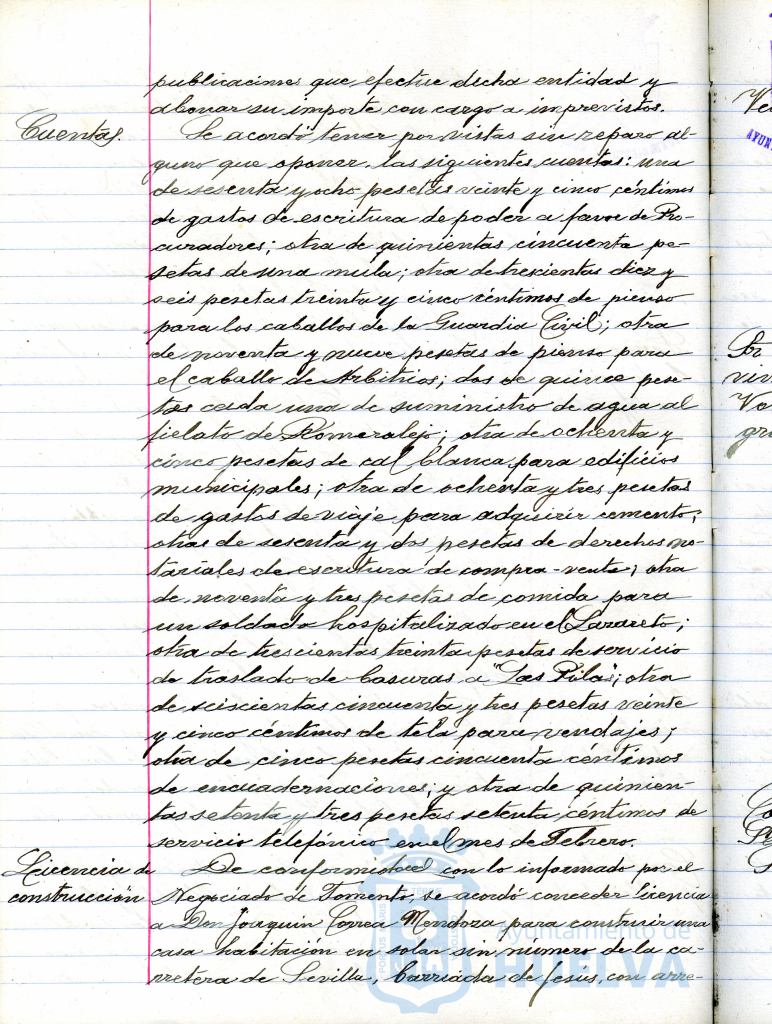 publicaciones que efectue dicha entidad y
abonar su importe con cargo a imprevistos.
Cuentas.
Se acordó tener por vistas sin reparo al-
guno que oponer. las siguientes cuentas: una
de sesenta y ocho pesetas veinte y cinco céntimos
de gastos de escritura de poder a favor de Pro-
curadores; otra de quinientas cincuenta pe-
setas de una mula; otra de trescientas diez y
seis pesetas treinta y cinco céntimos de pienso
para los caballos de la Guardia Civil; otra
de noventa y nueve pesetas de pienso para
el caballo de Arbitrios; dos de quince pese-
tas cada una de suministro de agua al
fielato de Romeralejo; otra de ochenta y
cinco pesetas de cal blanca para edificios
municipales; otra de ochenta y tres pesetas
de gastos de viaje para adquirir cemento;
otras de sesenta y dos pesetas de derechos no-
tariales de escritura de compra-venta; otra
de noventa y tres pesetas de comida para
un soldado hospitalizado en el Lazareto;
otra de trescientas treinta pesetas de servicio
de traslado de basuras a "Las Pilas"; otra
de seiscientas cincuenta y tres pesetas veinte
y cinco céntimos de tela para vendajes;
otra de cinco pesetas cincuenta céntimos
de encuadernaciones; y otra de quinien-
tas setenta y tres pesetas setenta céntimos de
servicio telefónico en el mes de Febrero.
Licencia de
construcción
De conformidad con lo informado por el
Negociado de Fomento, se acordó conceder licencia
a Don Joaquin Correa Mendoza para construir una
casa habitación en solar sin número de la ca-
rretera de Sevilla, barriada de Jesús, con arre-
Ayuntamiento de
HUELVA